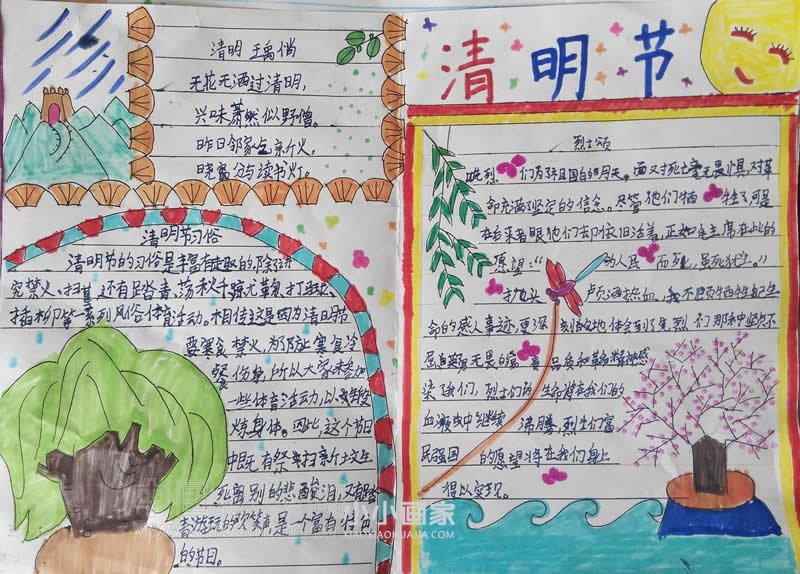 清明 王禹偁
无花无酒过清明,
兴味萧然似野僧。
昨日邻家乞新火,
晓窗分与读书灯。
清明节习俗
清明节的习俗是丰富有趣的,除了讲
究禁火、扫墓,还有踏青、荡秋千、蹴鞠、打马球、
插柳等一系列风俗体育活动。相传这是因为清明节
要寒食禁火,为了防止寒食冷
餐伤身,所以大家来参加
一些体育活动,以
炼身体。因此,这个节日
中既有祭扫新坟生
死离别的悲酸泪,又有踏
青游玩的欢笑声,是一个富有特色
的节日。
清明节
烈士颂
先烈们为了祖国的明天,面对死亡毫无畏惧,对革
命充满了坚定的信念。尽管他们牺牲了,可是
在后来者眼他们却依旧活着,正如毛主席在此的
愿望:“为人民而死,虽死犹生。”
抛头颅洒热血,
命的感人事迹,更深刻地体会到了先烈们那种坚
品质和革命精神感
染了我们,烈士们的生命将在我们的
血液中继续沸腾,烈士们富
民强国的愿望将在我们身上
得以实现。
小小画家
XIAOXIAOHUAJIA.COM